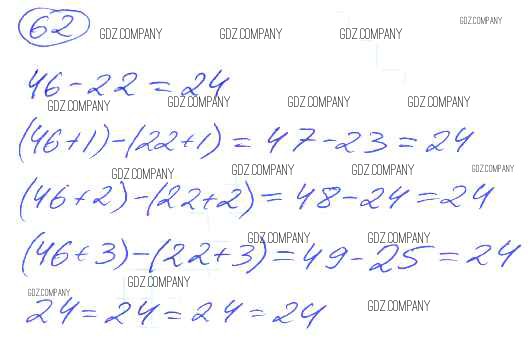 62 GDZ.COMPANY GDZ.COMPANY GDZ.COMPANY GDZ.COMPANY
46 - 22 = 24
GDZ.COMPANY GDZ.COMPANY GDZ.COMPANY GDZ.COMPANY
(46+1)-(22+1) = 47-23 = 24
GDZ.COMPANY GDZ.COMPANY GDZ.COMPANY GDZ.COMPANY
(46+2)-(22+2) = 48-24 = 24
GDZ.COMPANY GDZ.COMPANY
(46+3)-(22+3) = 49-25 = 24
GDZ.COMPANY GDZ.COMPANY
24 = 24 = 24 = 24 GDZ.COMPANY